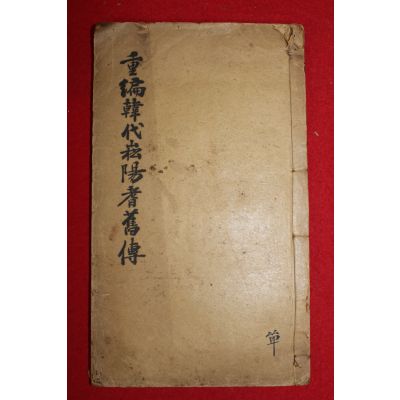 重編韓代崧陽耆舊傳
單